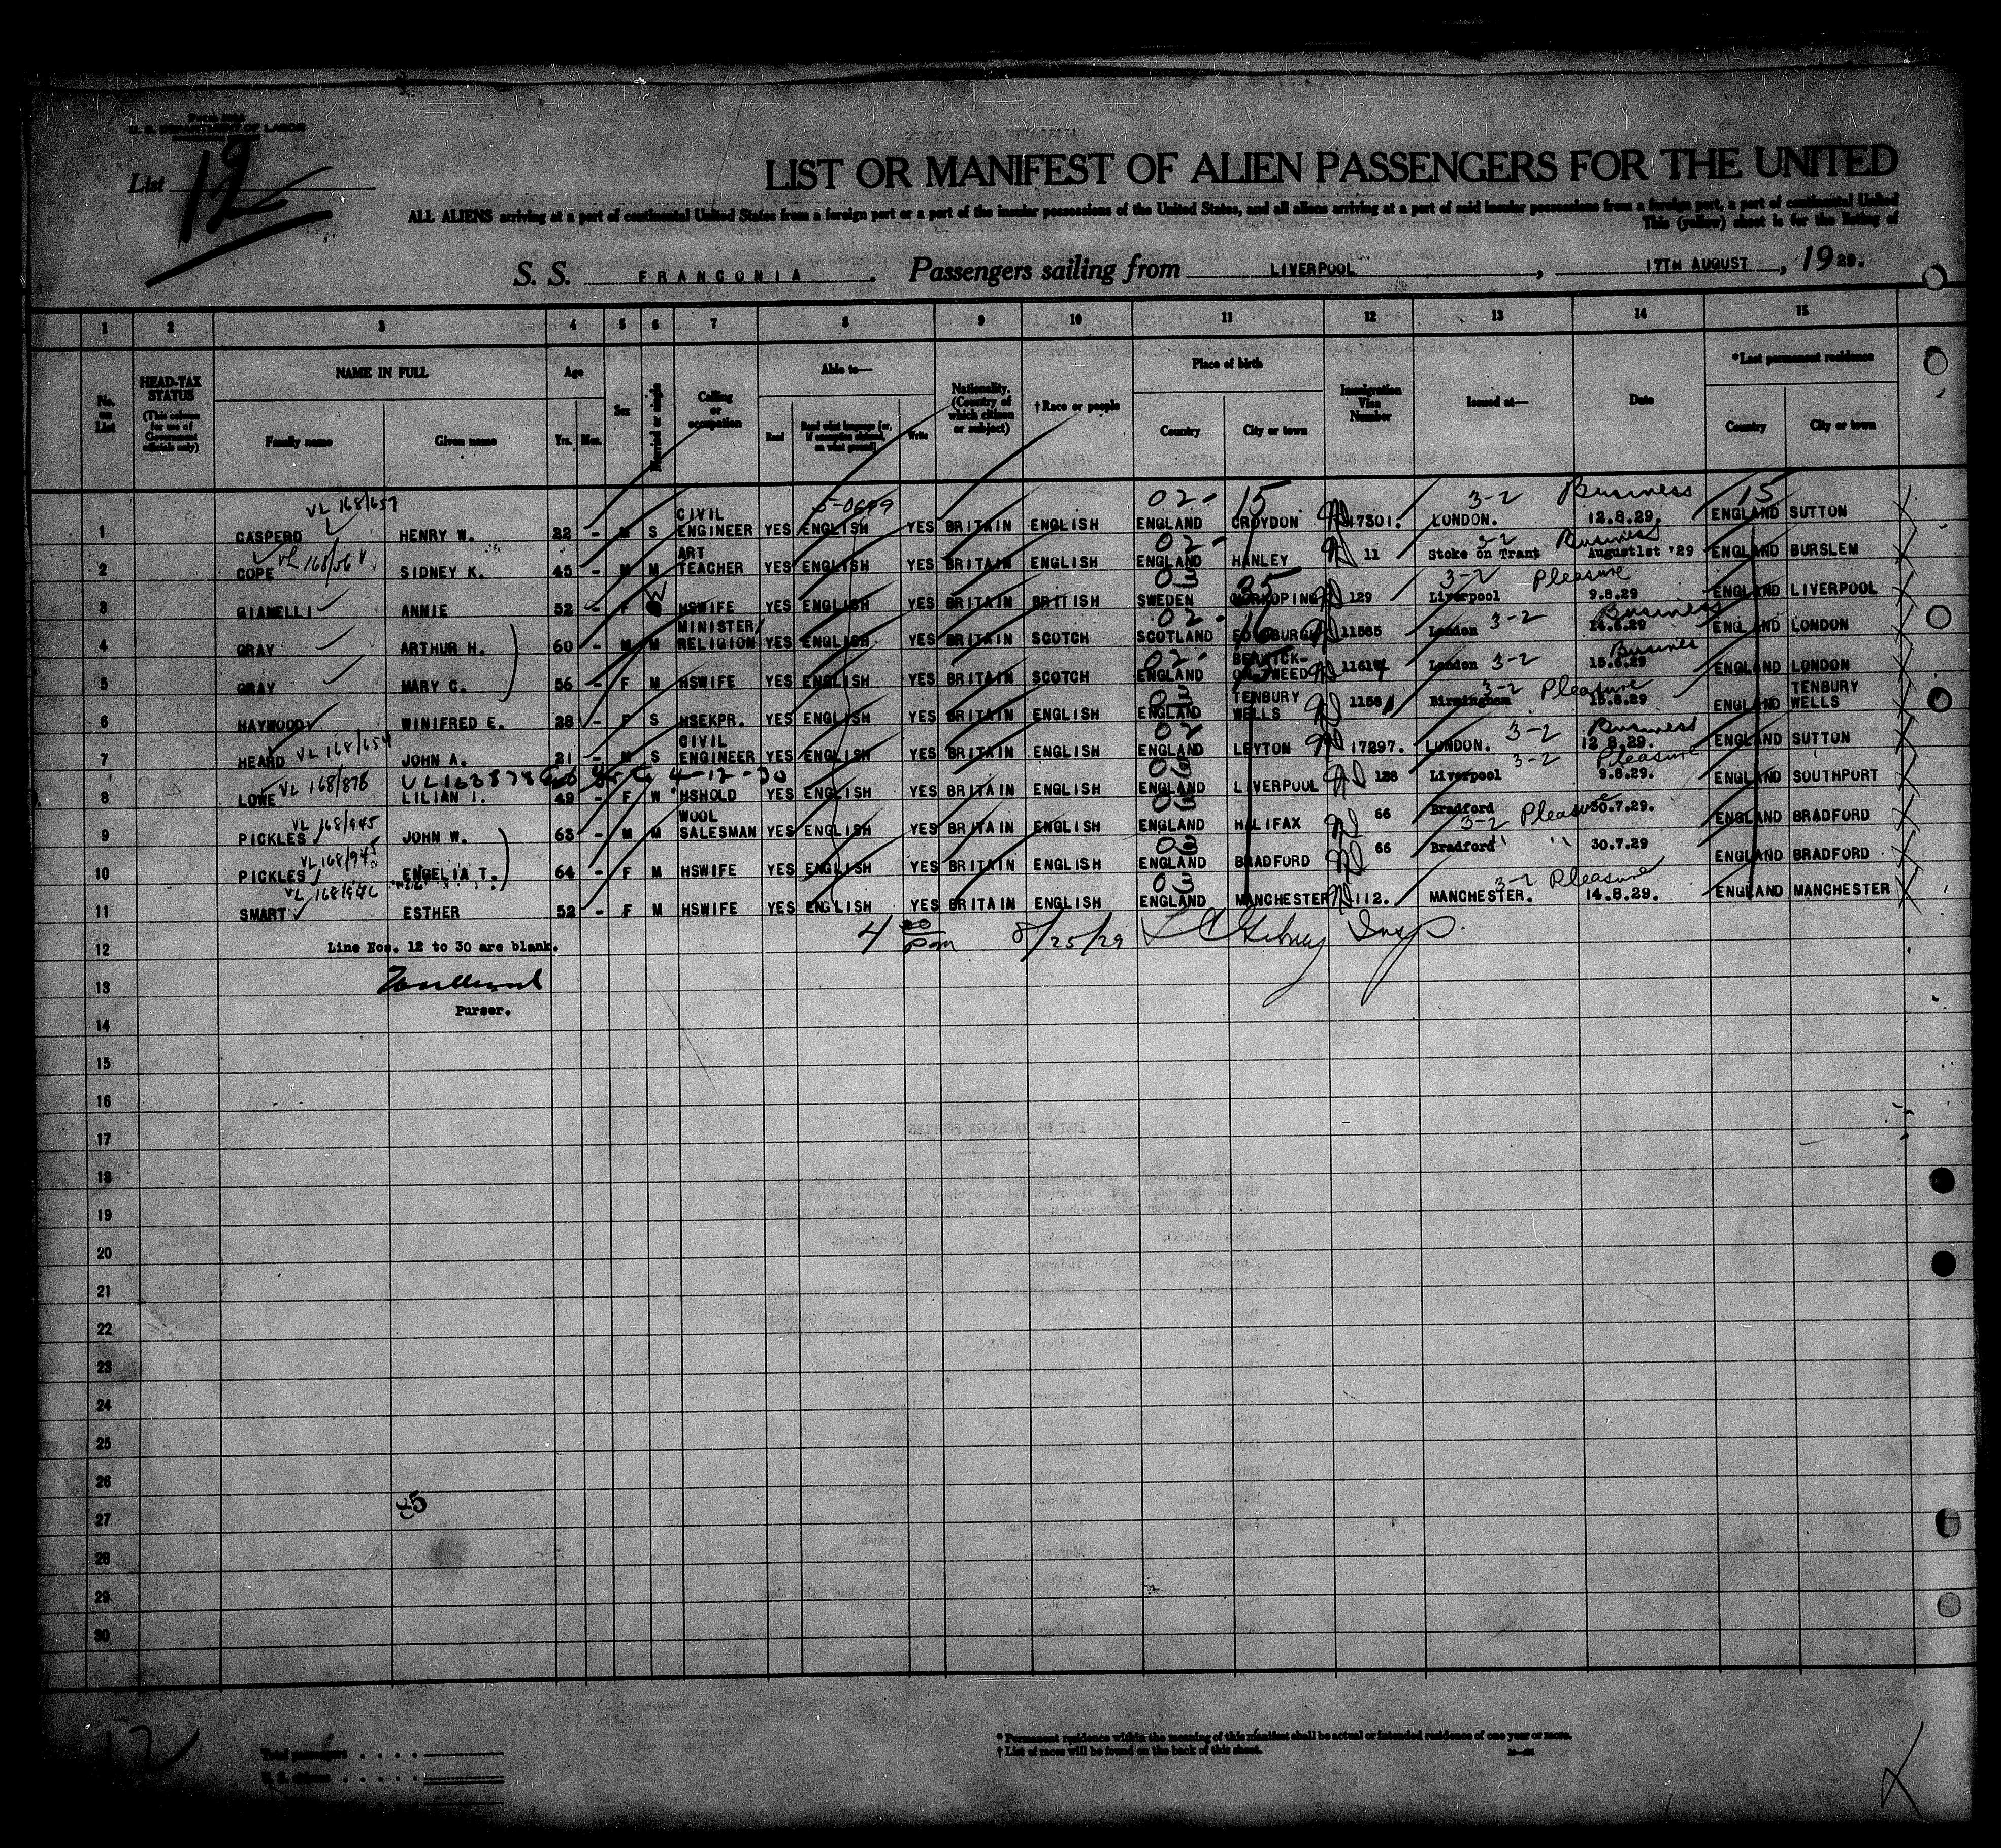 U. S. DEPARTMENT OF LABOR
List 12
LIST OR MANIFEST OF ALIEN PASSENGERS FOR THE UNITED
ALL ALIENS arriving at a port of continental United States from a foreign port or a port of the insular possessions of the United States, and all aliens arriving at a port of said insular possessions from a foreign port, a port of continental United
This (yellow) sheet is for the listing of
S. S. FRANCONIA. Passengers sailing from LIVERPOOL, 17TH AUGUST, 1929.
1 2 3 4 5 6 7 8 9 10 11 12 13 14 15
No. on List
HEAD-TAX STATUS (This column for use of Government officials only)
NAME IN FULL Family name Given name
Age Yrs. Mos.
Sex
Married or single
Calling or occupation
Able to— Read Read what language [or, if exemption claimed, on what ground] Write
Nationality. (Country of which citizen or subject)
†Race or people
Place of birth Country City or town
Immigration Visa Number
Issued at—
Date
*Last permanent residence Country City or town
VL 168/657 5-0699 02- 15 3-2 Business 15
1 CASPERD HENRY W. 22 - M S CIVIL ENGINEER YES ENGLISH YES BRITAIN ENGLISH ENGLAND CROYDON 17301. LONDON. 12.8.29. ENGLAND SUTTON
02- 3-2 Business
2 COPE SIDNEY K. 45 - M M ART TEACHER YES ENGLISH YES BRITAIN ENGLISH ENGLAND HANLEY 11 Stoke on Trent August1st '29 ENGLAND BURSLEM
03 3-2 Pleasure
3 GIANELLI ANNIE 52 - F W HSWIFE YES ENGLISH YES BRITAIN BRITISH SWEDEN 129 Liverpool 9.8.29 ENGLAND LIVERPOOL
02- 16 3-2 Business
4 GRAY ARTHUR H. 60 - M M MINISTER/ RELIGION YES ENGLISH YES BRITAIN SCOTCH SCOTLAND EDINBURGH 11585 London ENGLAND LONDON
02- 3-2 Business
5 GRAY MARY C. 56 - F M HSWIFE YES ENGLISH YES BRITAIN SCOTCH ENGLAND BERWICK-ON-TWEED London ENGLAND LONDON
03 3-2 Pleasure
6 HAYWOOD WINIFRED E. 28 - F S HSEKPR. YES ENGLISH YES BRITAIN ENGLISH ENGLAND TENBURY WELLS Birmingham 15.8.29 ENGLAND TENBURY WELLS
VL 168/654 02 3-2 Business
7 HEARD JOHN A. 21 - M S CIVIL ENGINEER YES ENGLISH YES BRITAIN ENGLISH ENGLAND LEYTON 17297. LONDON. 12.8.29. ENGLAND SUTTON
VL 168/878 4-12-30 03 3-2 Pleasure
8 LOWE LILIAN I. 49 - F W HSHOLD YES ENGLISH YES BRITAIN ENGLISH ENGLAND LIVERPOOL 128 Liverpool 9.8.29. ENGLAND SOUTHPORT
VL 168/945 03 3-2 Pleasure
9 PICKLES JOHN W. 63 - M M WOOL SALESMAN YES ENGLISH YES BRITAIN ENGLISH ENGLAND HALIFAX 66 Bradford 30.7.29. ENGLAND BRADFORD
VL 168/945 03 " "
10 PICKLES ENGELIA T. 64 - F M HSWIFE YES ENGLISH YES BRITAIN ENGLISH ENGLAND BRADFORD 66 Bradford 30.7.29 ENGLAND BRADFORD
VL 168/946 03 3-2 Pleasure
11 SMART ESTHER 52 - F M HSWIFE YES ENGLISH YES BRITAIN ENGLISH ENGLAND MANCHESTER 112. MANCHESTER. 14.8.29. ENGLAND MANCHESTER
12 Line Nos. 12 to 30 are blank. 4 00 pm 8/25/29 Insp.
13
Purser.
14
15
16
17
18
19
20
21
22
23
24
25
26
27
85
28
29
30
12
Total passengers . . . .
U. S. citizens . . . . .
* Permanent residence within the meaning of this manifest shall be actual or intended residence of one year or more.
† List of races will be found on the back of this sheet.